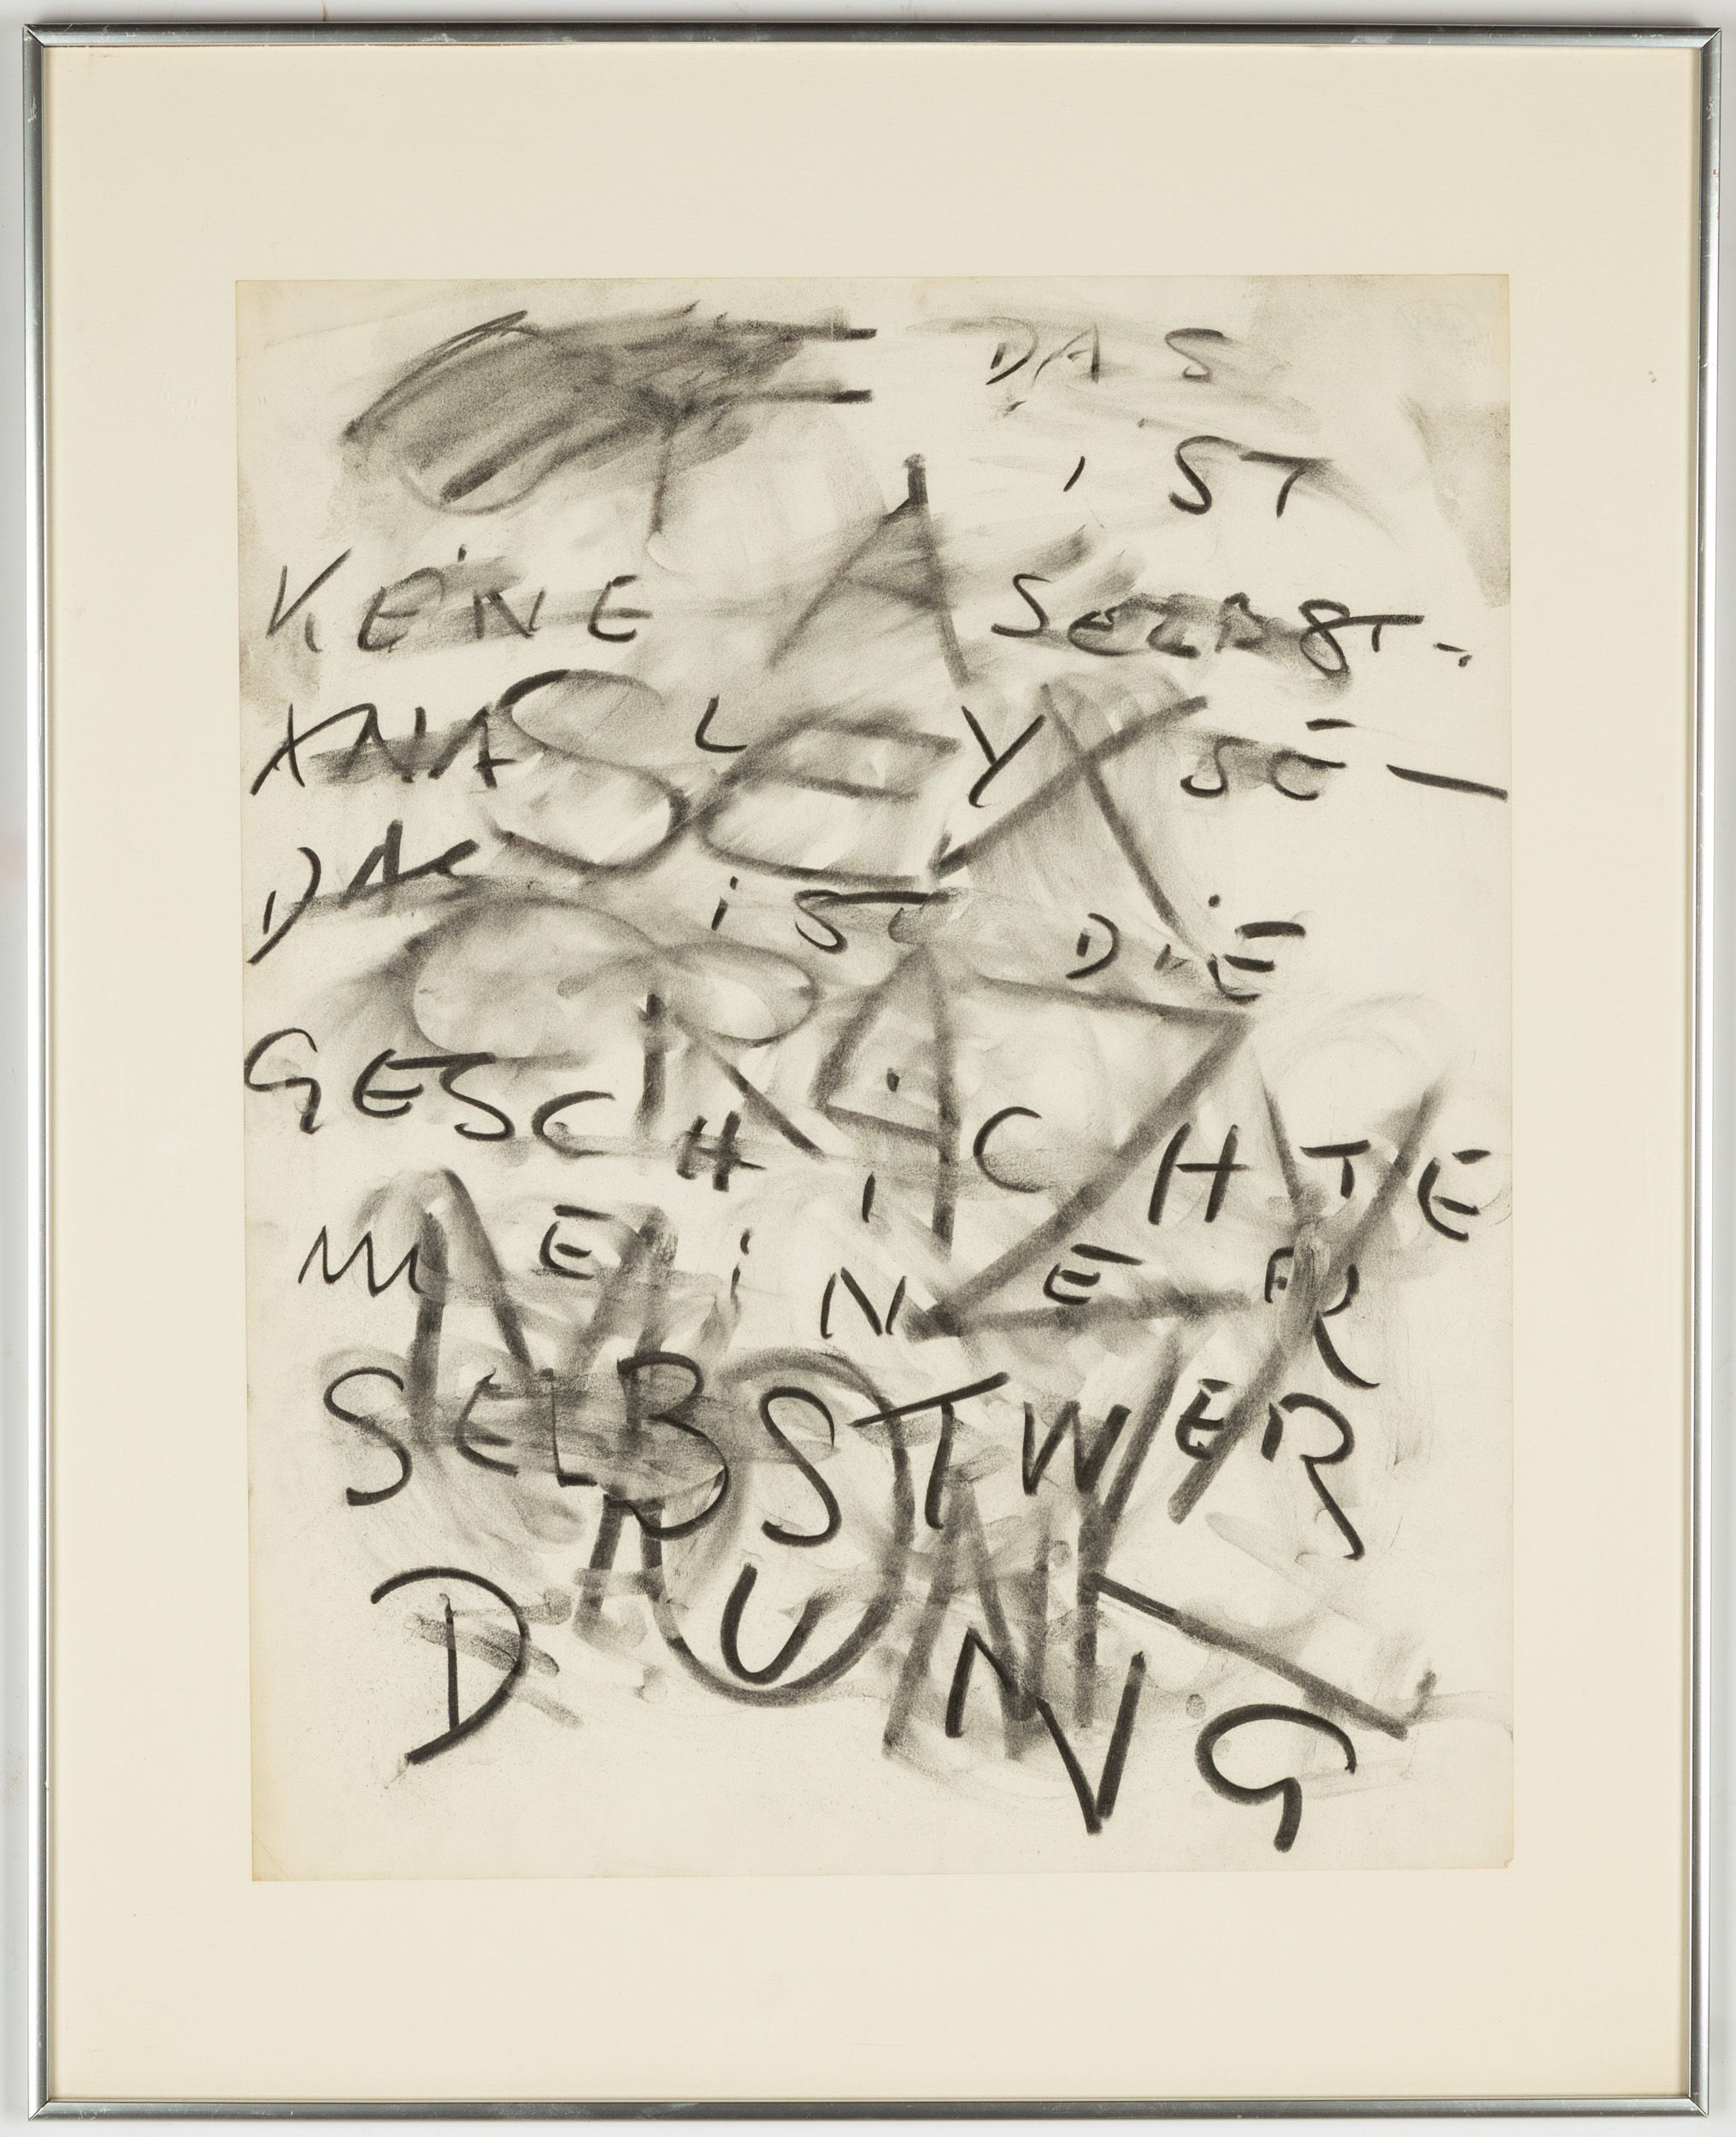 DAS
iST
KEiNE SELBST-
ANALYSE —
DAS iST DiE
GESCHICHTE
MEiNER
SELBSTWER
DUNG